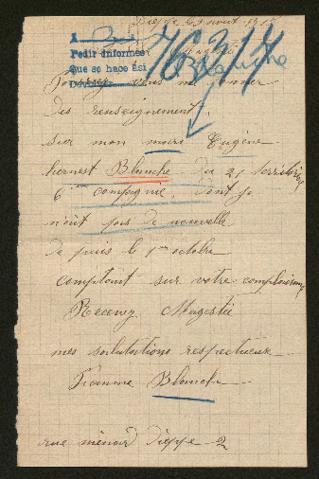 Dieppe
A
Pedir informes
que se hace así
76217
Blanche
Pourriez vous me donner
des renseignement
sur mon mari Eugène
hernest Blanche du 21 territoriale
6ème compagnie, dont je
n'ait pas de nouvelle
de puis le 1er octobre
comptant sur votre complaisance
Recevez Magestée
mes salutations respectueux
Jeanne Blanche
rue ménard dieppe 2